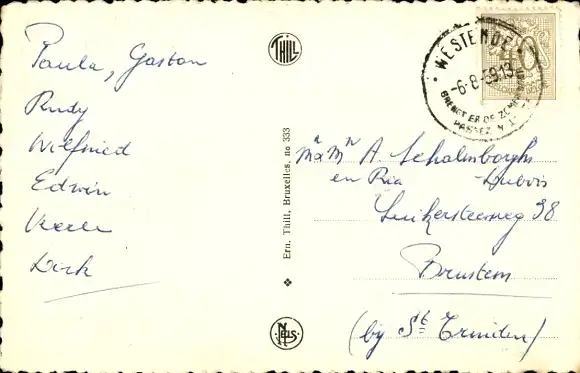 Paula, Gaston
Rudy
Wilfried
Edwin
Veerle
Dirk
THILL
Ern. Thill, Bruxelles, no 333
NELS
WESTENDE
-6-8-59.13
BRENGT ER DE
PASSEZ Y
40
Mr A. Schalenborghs
en Ria Dubois
Luikersteenweg 38
Brustem
(bij St Truiden)